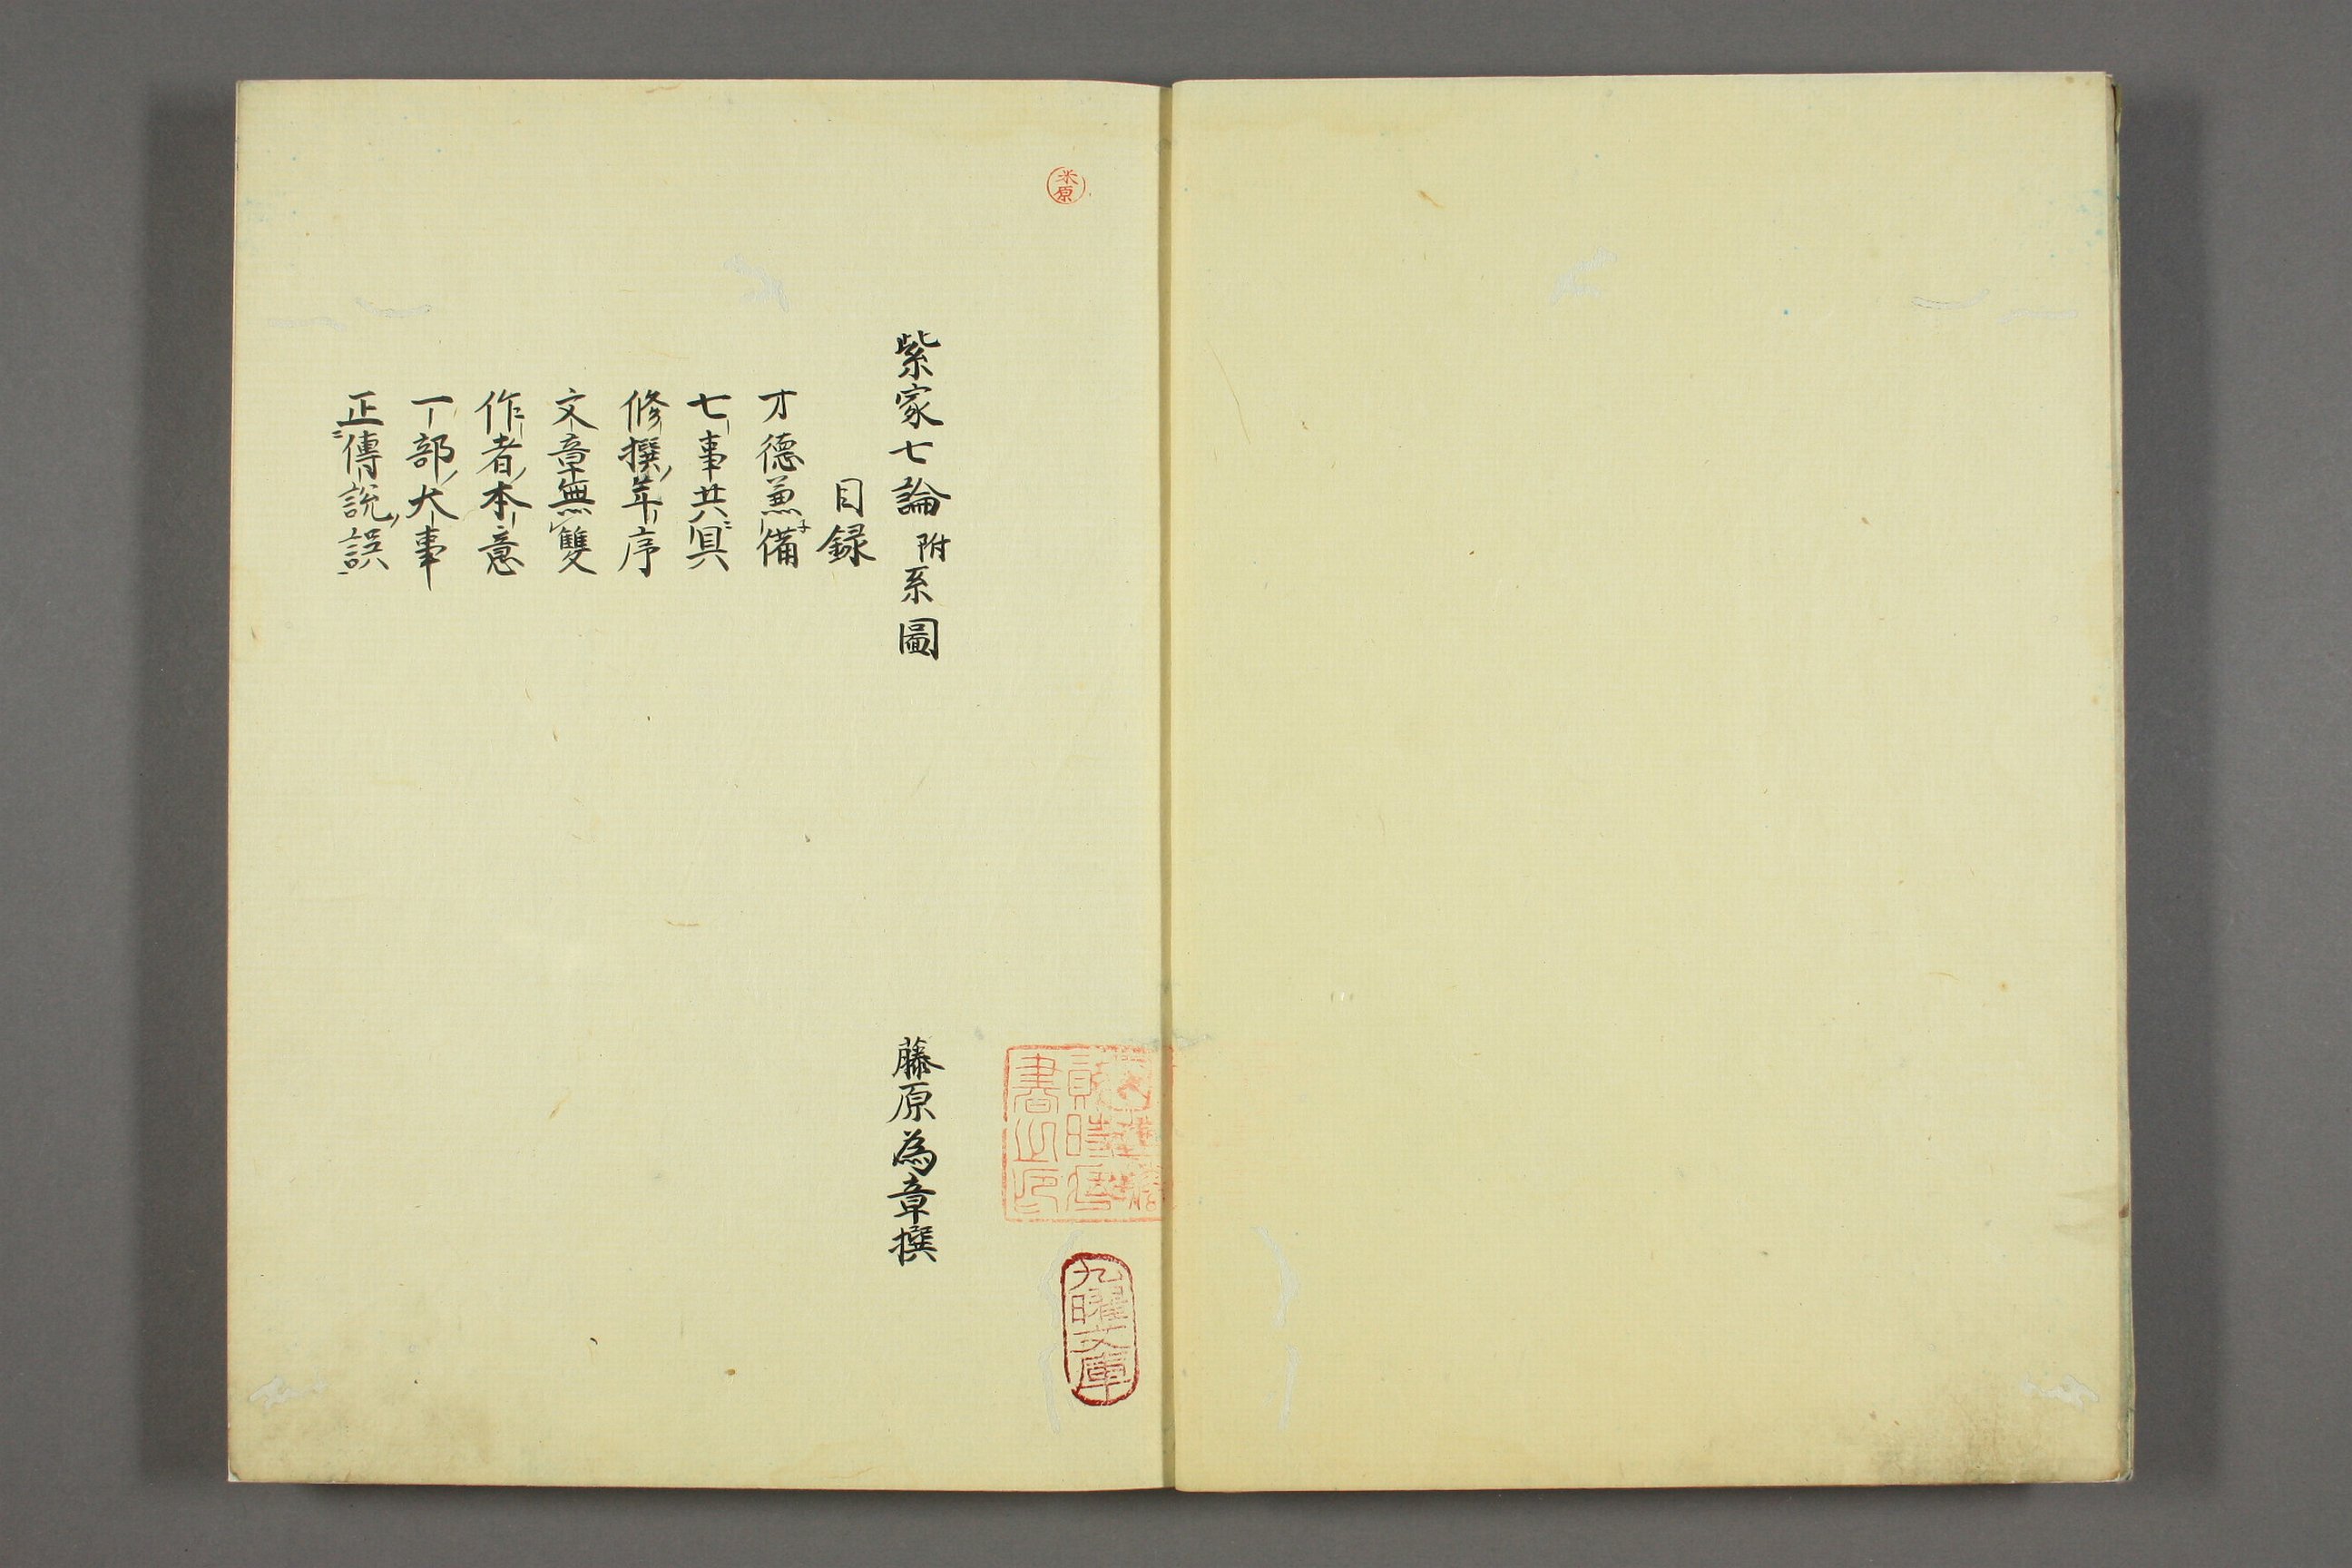 紫家七論 附系圖
藤原為章撰
目録
才德兼備
七事共具
修撰年序
文章無雙
作者本意
一部大事
正傳說誤
米原
書之印
九曜文庫